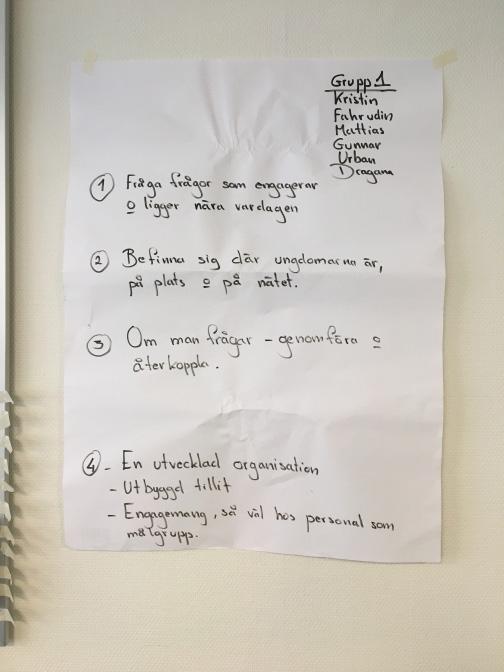 Grupp 1
Kristin
Fahrudin
Mattias
Gunnar
Urban
Dragana
1 Fråga frågor som engagerar
o ligger nära vardagen
2 Befinna sig där ungdomarna är,
på plats o på nätet.
3 Om man frågar - genomföra o
återkoppla.
4 - En utvecklad organisation
- Utbyggd tillit
- Engagemang, så väl hos personal som
målgrupp.